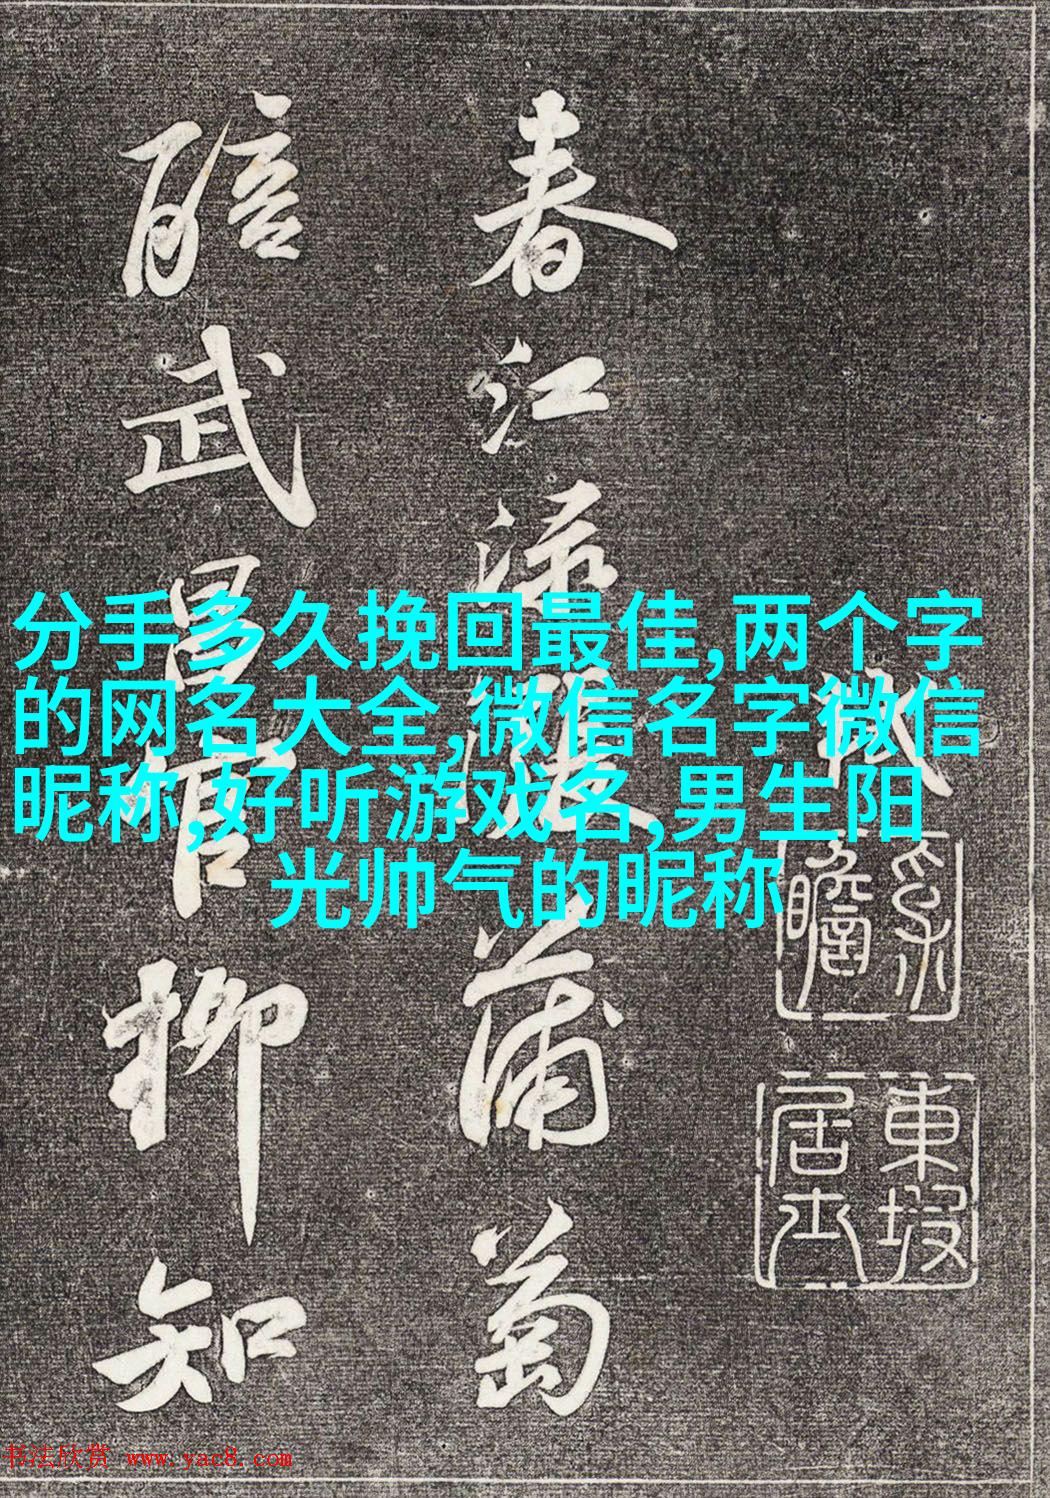 春江渌涨蒲萄
醅武昌官柳知
軾
子瞻
東坡居士
分手多久挽回最佳,两个字
的网名大全,微信名字微信
昵称,好听游戏名,男生阳
光帅气的昵称
书法欣赏 www.yac8.com